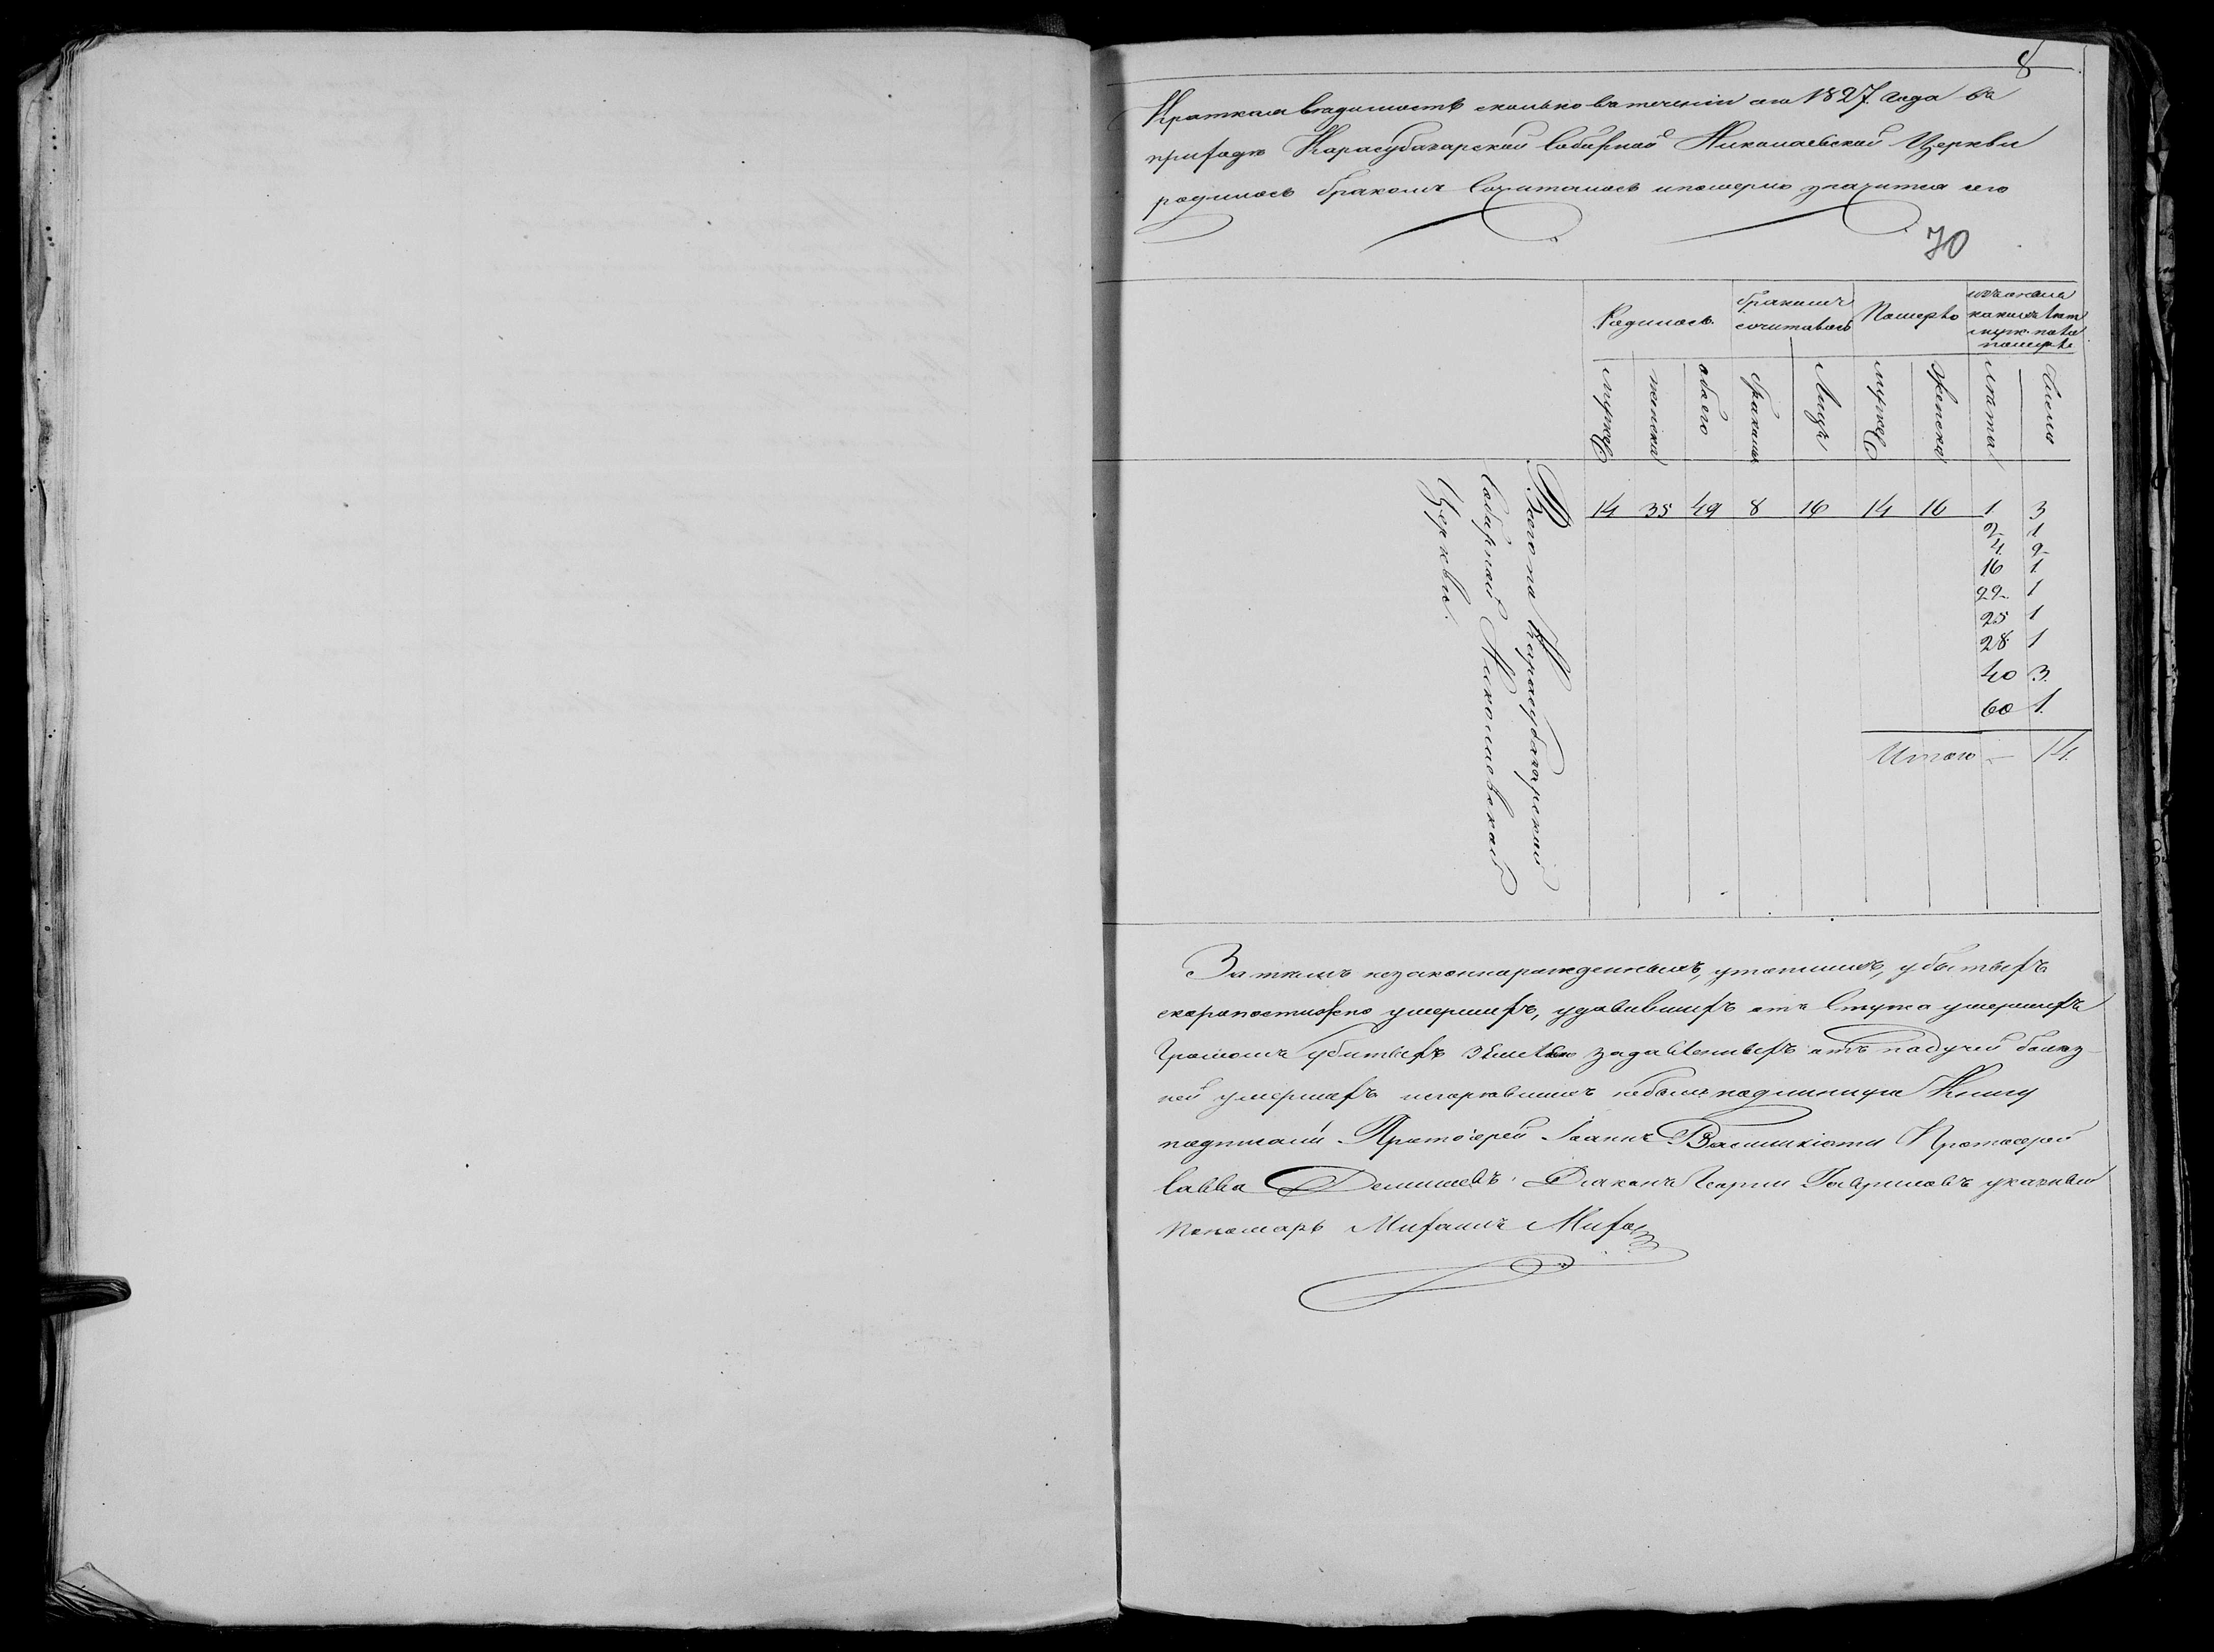 8
Краткая вѣдомость сколько въ теченіи сего 1827. Года въ
приходѣ Карасубазарской Соборной Николаевской Церкви
родилось бракомъ Сочиталось и померло значится сего
70
Родилось
бракомъ сочиталось
Померло
померло
мужес
женска
обоего
браками
Лицъ
мужес
Женска
лѣта
Число
Всего на Карасубазарской
Соборной Николаевской
Церкви.
14 35 49 8 16 14 16 1 3
2 1
4. 2
16 1.
22. 1
25 1
28. 1
40 3.
60 1.
Итого — 14.
За тѣмъ незаконнорожденныхъ, утопшихъ, убитыхъ
скоропостижно умершихъ, удавившихъ отъ Стужа умершихъ
Громомъ убитыхъ Землею задавленныхъ отъ падучей болѣз-
ней умершихъ и сгорѣвшихъ небыло подлинную Книгу
подписали Протоіерей Іоаннъ Протоіерей
Савва Діаконъ Георгіи Гавриловъ указный
Пономарь Михаилъ